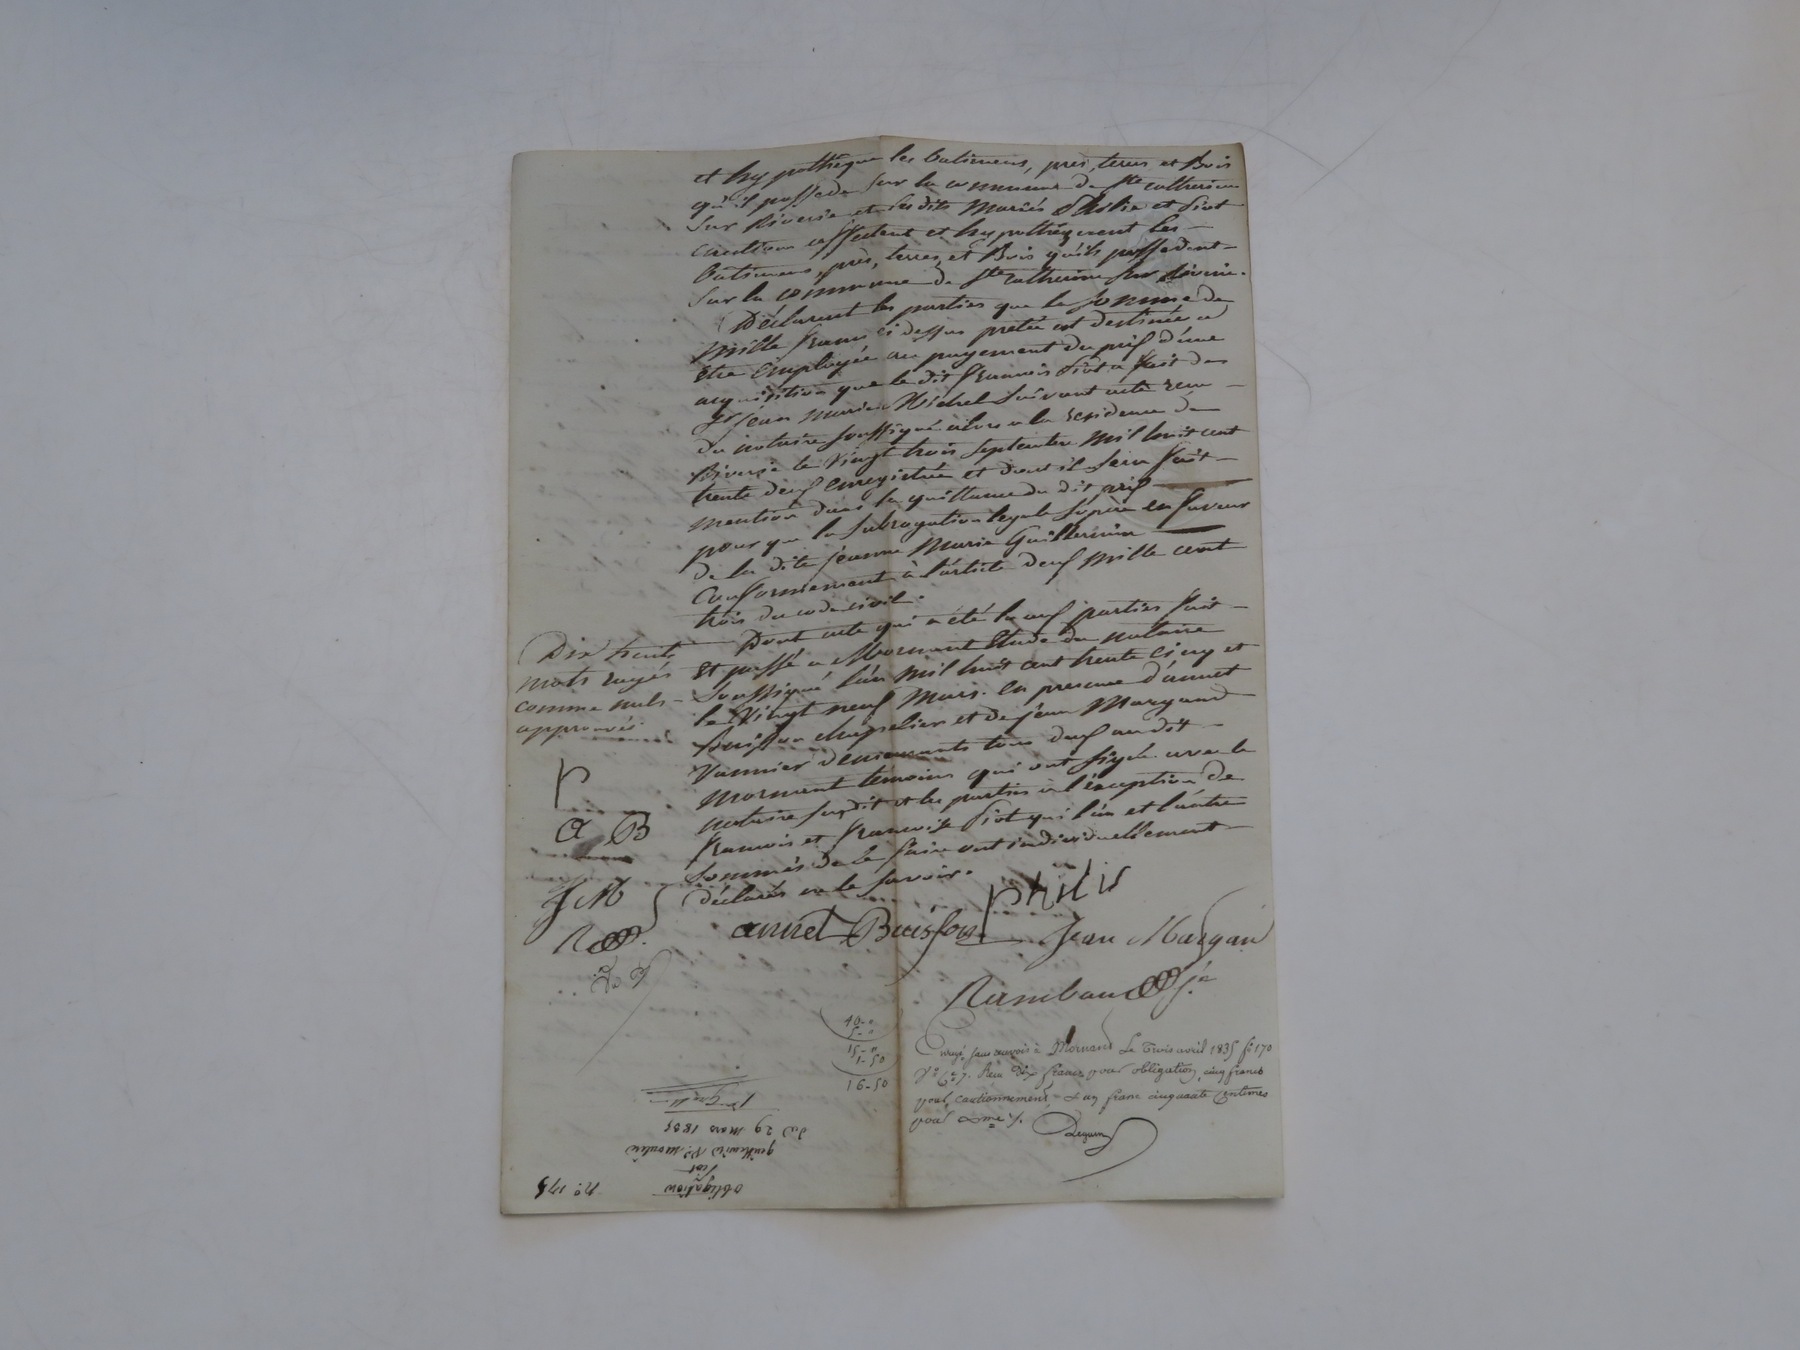 et hypothèque les batimens, prés, terres et Bois
qu'il possede sur la commune de Ste catherine
sur Riverie et lesdits Mariés Philis et Piot
caution affectent et hypothèquent les
batimens, prés, terres, et Bois qu'ils possedent
sur la commune de Ste catherine sur Riverie.
Déclarent les parties que la somme de
Mille francs ci dessus pretée est destinée a
etre Employée au payement du prix d'une
acquisition que le dit François Piot a fait de
Sr jean Marie Michel suivant acte reçu
du notaire soussigné alors a la residence de
Riverie le Vingt trois septembre Mil huit cent
trente deux enregistrée et dont il sera fait
mention dans la quittance du dit prix
pour que la subrogation legale s'opère en faveur
de la dite jeanne Marie Guillermin
Conformement à l'article deux Mille cent
trois du code civil.
Dont acte qui a été lu aux parties fait
et passé a Mornant Etude du notaire
soussigné l'an Mil huit cent trente cinq et
le Vingt neuf Mars. en presence d'annet
Buisson chapelier et de jean Margand
Vannier demeurants tous deux au dit
Mornant temoins qui ont signé avec le
notaire susdit et les parties à l'exception de
François et françoise Piot qui l'un et l'autre
sommés de le faire ont individuellement
déclarés ne le savoir.
Dix huit
mots rayés
comme nuls
approuvés
P
a B
J M
R
philis
annet Buisson
Jean Margan
Rambaud
Enregé sans renvois à Mornand Le Trois avril 1835 fo 170
Reçu Dix francs pour obligation, cinq francs
pour cautionnement, & un franc cinquante Centimes
pour Dme ./.
40-"
5-"
15-"
1-50
16-50
No. 175
obligation
Piot
du 29 Mars 1835